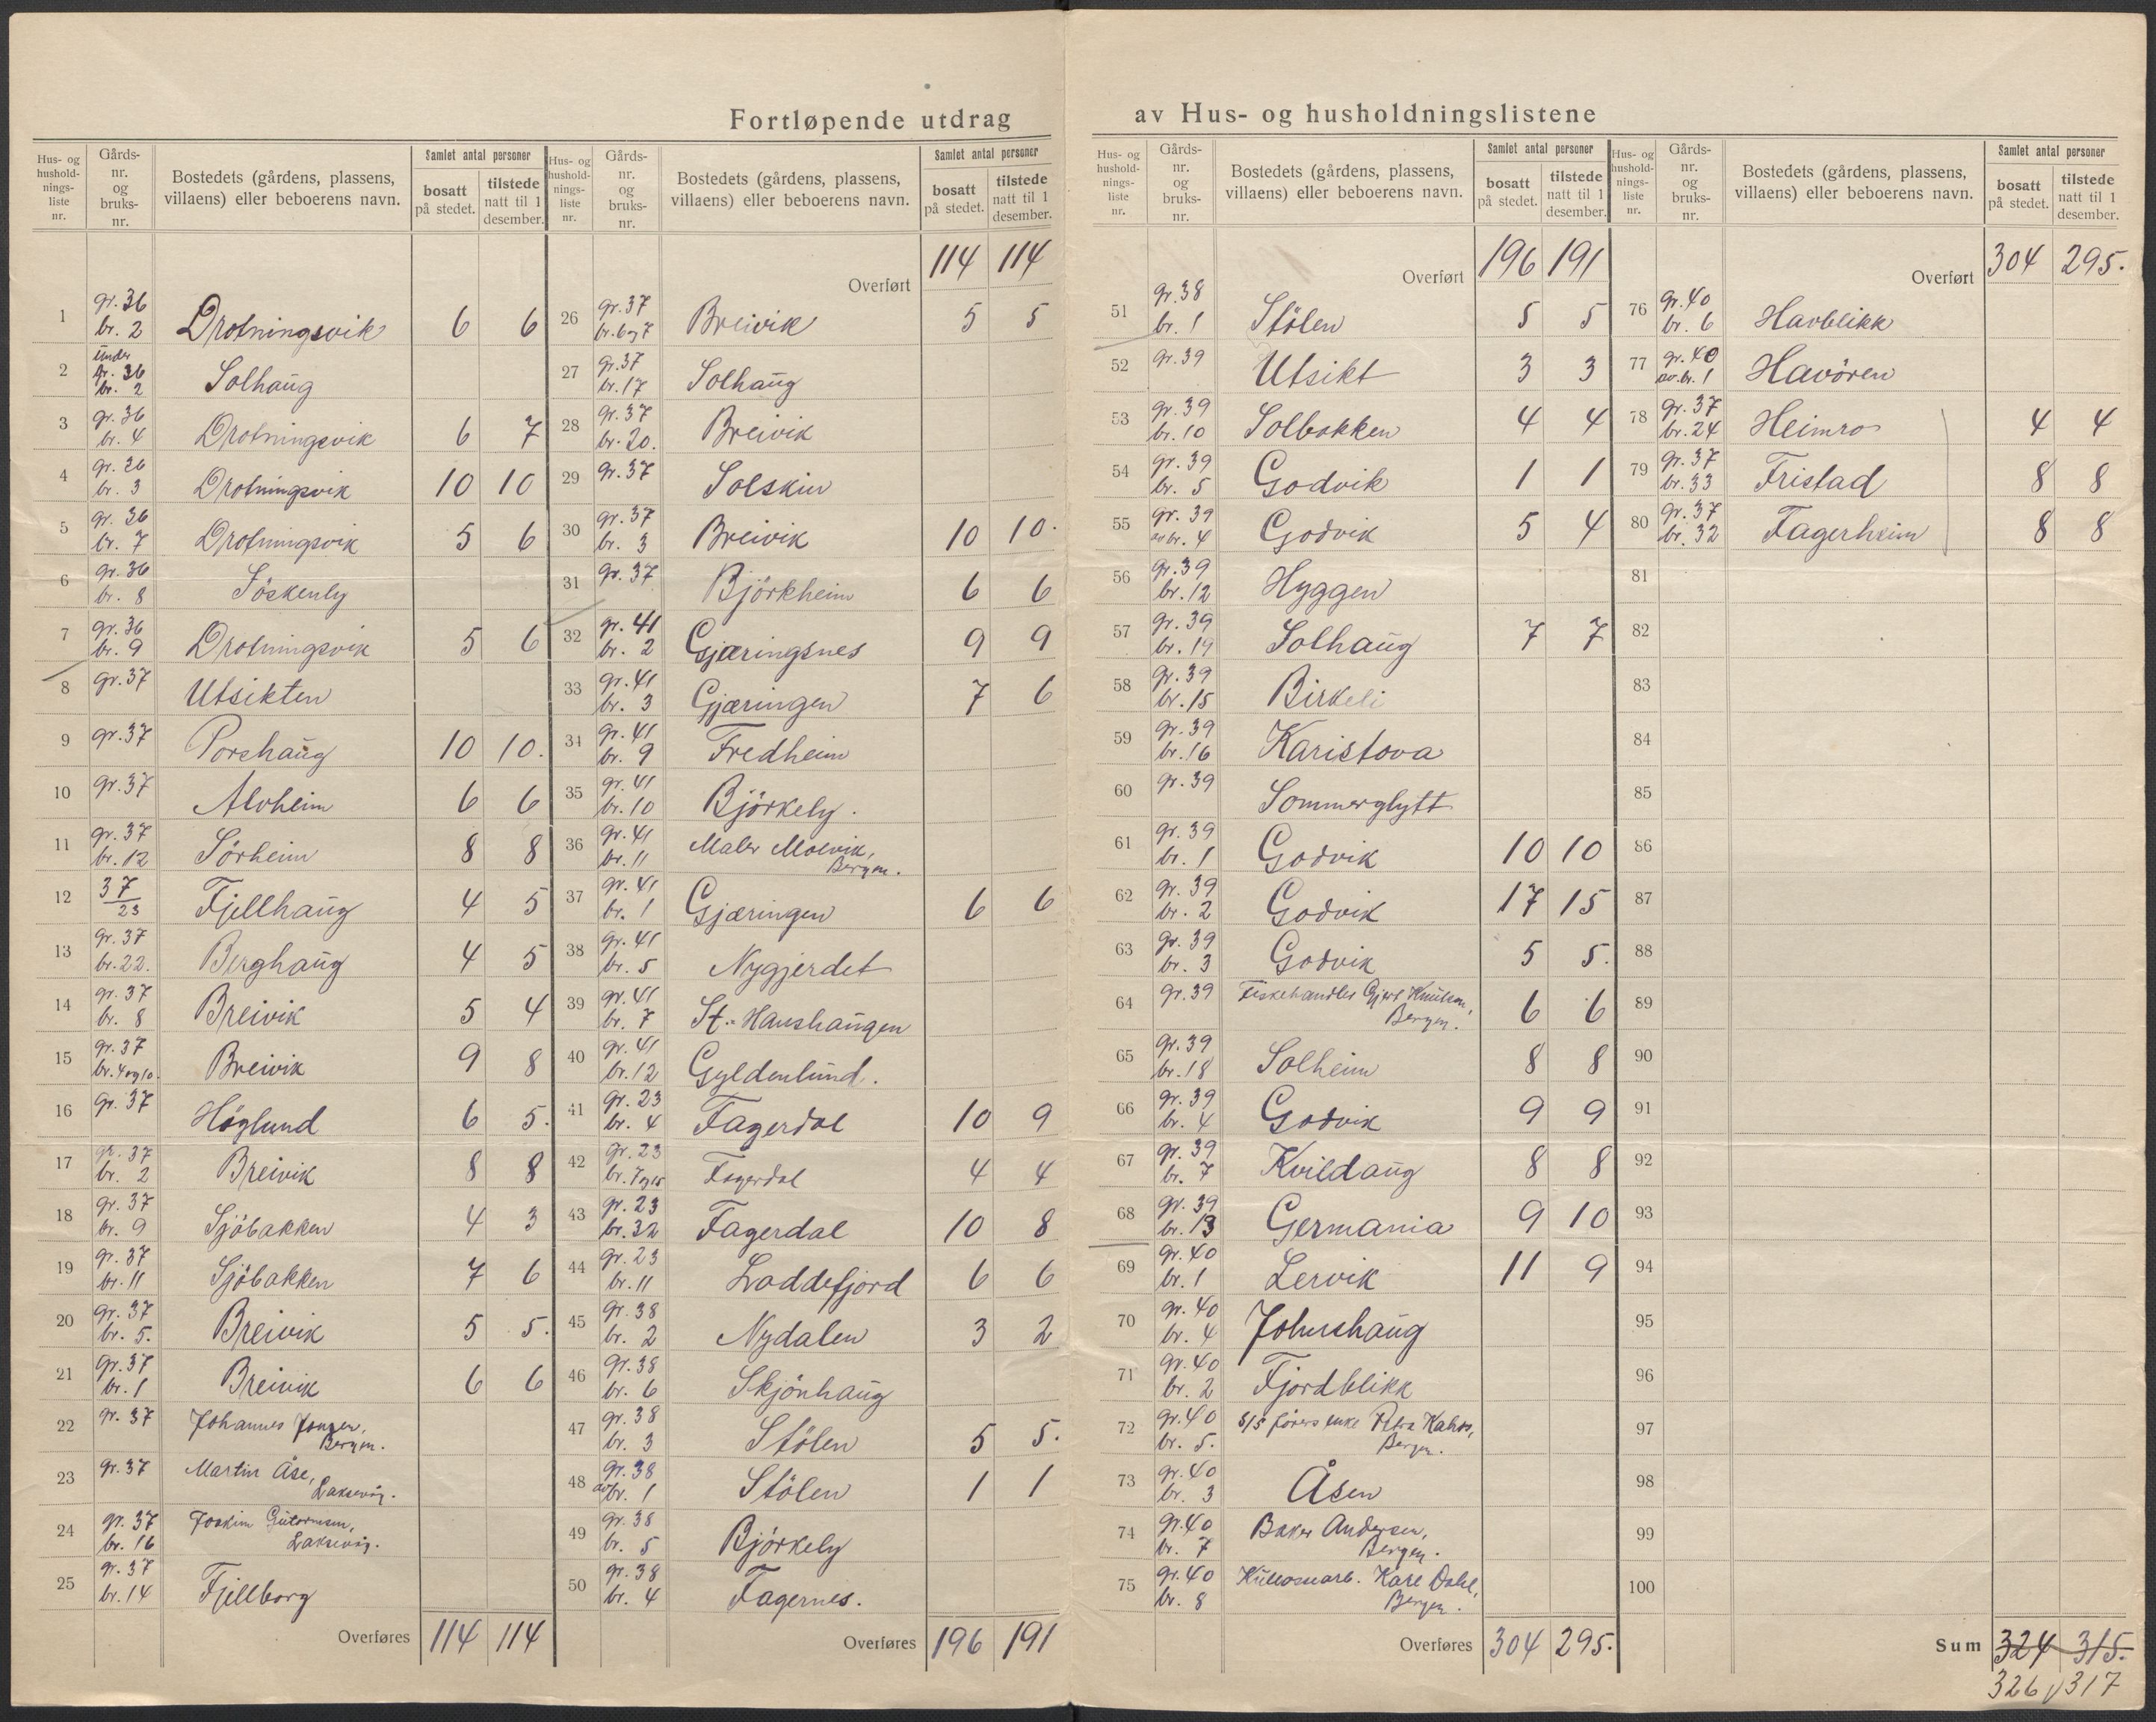 Fortløpende utdrag av Hus- og husholdningslistene
Hus- og husholdnings-liste nr. Gårds-nr. og bruks-nr. Bostedets (gårdens, plassens, villaens) eller beboerens navn. Samlet antal personer bosatt på stedet. tilstede natt til 1 desember.
Hus- og husholdnings-liste nr. Gårds-nr. og bruks-nr. Bostedets (gårdens, plassens, villaens) eller beboerens navn. Samlet antal personer bosatt på stedet. tilstede natt til 1 desember.
Hus- og husholdnings-liste nr. Gårds-nr. og bruks-nr. Bostedets (gårdens, plassens, villaens) eller beboerens navn. Samlet antal personer bosatt på stedet. tilstede natt til 1 desember.
Hus- og husholdnings-liste nr. Gårds-nr. og bruks-nr. Bostedets (gårdens, plassens, villaens) eller beboerens navn. Samlet antal personer bosatt på stedet. tilstede natt til 1 desember.
1 gr. 36 br. 2 Drotningsvik 6 6
2 under gr. 36 br. 2 Solhaug
3 gr. 36 br. 4 Drotningsvik 6 7
4 gr. 36 br. 3 Drotningsvik 10 10
5 gr. 36 br. 7 Drotningsvik 5 6
6 gr. 36 br. 8 Söskenly
7 gr. 36 br. 9 Drotningsvik 5 6
8 gr. 37 Utsikten
9 gr. 37 Porshaug 10 10.
10 gr. 37 Alvheim 6 6
11 gr. 37 br. 12 Sörheim 8 8
12 37/23 Fjellhaug 4 5
13 gr. 37 br. 22. Berghaug 4 5
14 gr. 37 br. 8 Breivik 5 4
15 gr. 37 br. 4 og 10. Breivik 9 8
16 gr. 37 Höglund 6 5.
17 gr. 37 br. 2 Breivik 8 8
18 gr. 37 br. 9 Sjöbakken 4 3
19 gr. 37 br. 11 Sjöbakken 7 6
20 gr. 37 br. 5. Breivik 5 5.
21 gr. 37 br. 1 Breivik 6 6
22 gr. 37 Johannes Jonsen, Bergen.
23 gr. 37 Martin Åse, Laksevåg.
24 gr. 37 br. 16 Joakim Gutormsen, Laksevåg.
25 gr. 37 br. 14 Fjellborg
Overføres 114 114
Overført 114 114
26 gr. 37 br. 6 og 7 Breivik 5 5
27 gr. 37 br. 17 Solhaug
28 gr. 37 br. 20. Breivik
29 gr. 37 Solskin
30 gr. 37 br. 3 Breivik 10 10.
31 gr. 37 Björkheim 6 6
32 gr. 41 br. 2 Gjæringsnes 9 9
33 gr. 41 br. 3 Gjæringen 7 6
34 gr. 41 br. 9 Fredheim
35 gr. 41 br. 10 Björkely.
36 gr. 41 br. 11 Maler Molvik, Bergen.
37 gr. 41 br. 1 Gjæringen 6 6
38 gr. 41 br. 5 Nygjerdet
39 gr. 41 br. 7 St. Hanshaugen
40 gr. 41 br. 12 Gyldenlund.
41 gr. 23 br. 4 Fagerdal 10 9
42 gr. 23 br. 7 og 15 Fagerdal 4 4
43 gr. 23 br. 32 Fagerdal 10 8
44 gr. 23 br. 11 Loddefjord 6 6
45 gr. 38 br. 2 Nydalen 3 2
46 gr. 38 br. 6 Skjönhaug
47 gr. 38 br. 3 Stölen 5 5.
48 gr. 38 av br. 1 Stölen 1 1
49 gr. 38 br. 5 Björkely
50 gr. 38 br. 4 Fagernes.
Overføres 196 191
Overført 196 191
51 gr. 38 br. 1 Stölen 5 5
52 gr. 39 Utsikt 3 3
53 gr. 39 br. 10 Solbakken 4 4
54 gr. 39 br. 5 Godvik 1 1
55 gr. 39 av br. 4 Godvik 5 4
56 gr. 39 br. 12 Hyggen
57 gr. 39 br. 19 Solhaug 7 7
58 gr. 39 br. 15 Birkeli
59 gr. 39 br. 16 Karistova
60 gr. 39 Sommerglytt
61 gr. 39 br. 1 Godvik 10 10
62 gr. 39 br. 2 Godvik 17 15
63 gr. 39 br. 3 Godvik 5 5.
64 gr. 39 Fiskehandler Gjert Knutsen, Bergen. 6 6
65 gr. 39 br. 18 Solheim 8 8
66 gr. 39 br. 4 Godvik 9 9
67 gr. 39 br. 7 Kvildaug 8 8
68 gr. 39 br. 13 Germania 9 10
69 gr. 40 br. 1 Lervik 11 9
70 gr. 40 br. 4 Johnshaug
71 gr. 40 br. 2 Fjordblikk
72 gr. 40 br. 5. S/S förers enke Petra Kahrs, Bergen.
73 gr. 40 br. 3 Åsen
74 gr. 40 br. 7 Baker Andersen, Bergen.
75 gr. 40 br. 8 Karl Dahl, Bergen.
Overføres 304 295.
Overført 304 295.
76 gr. 40 br. 6 Havblikk
77 gr. 40 av br. 1 Havören
78 gr. 37 br. 24 Heimro 4 4
79 gr. 37 br. 33 Fristad 8 8
80 gr. 37 br. 32 Fagerheim 8 8
81
82
83
84
85
86
87
88
89
90
91
92
93
94
95
96
97
98
99
100
Sum 324 315.
326 317